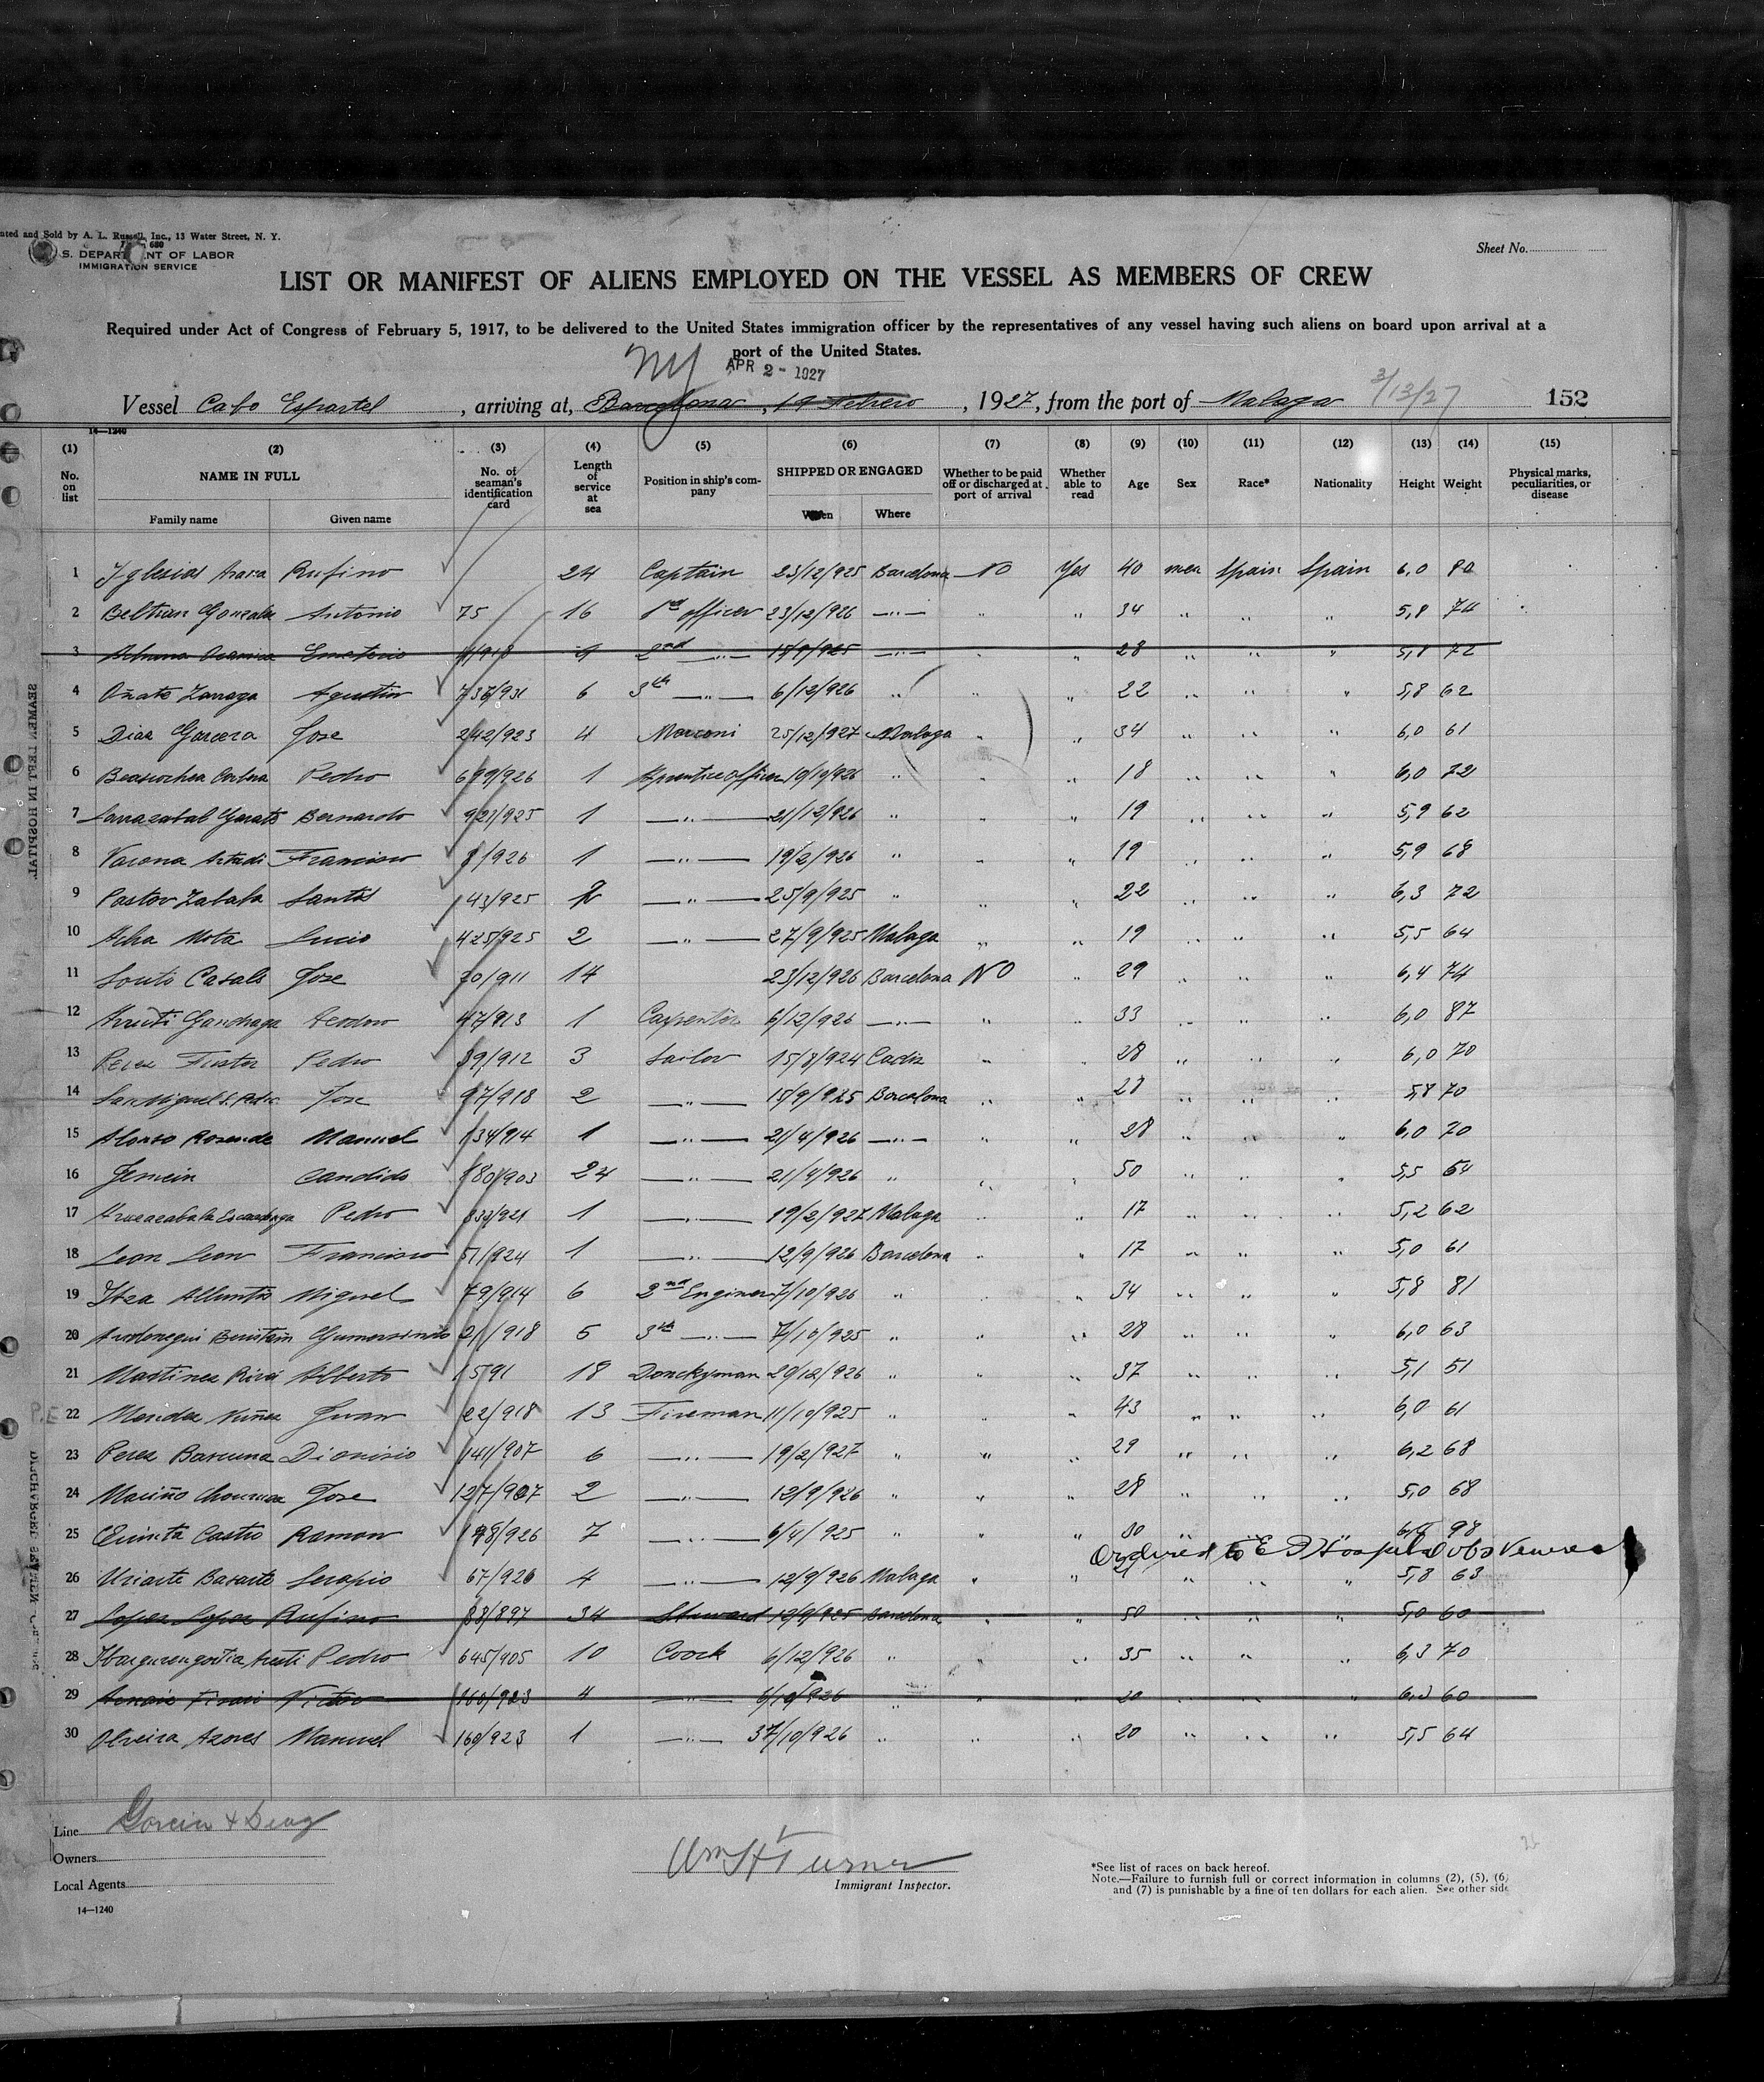 Sold by A. L. Russell, Inc., 13 Water Street, N. Y.
S. DEPARTMENT OF LABOR
IMMIGRATION SERVICE
Sheet No.
LIST OR MANIFEST OF ALIENS EMPLOYED ON THE VESSEL AS MEMBERS OF CREW
Required under Act of Congress of February 5, 1917, to be delivered to the United States immigration officer by the representatives of any vessel having such aliens on board upon arrival at a
port of the United States.
NY APR 2 - 1927
Vessel Cabo Espartel, arriving at, Barcelona, 19 Febrero, 1927, from the port of Malaga 3/13/27 152
14—1240
(1) (2) (3) (4) (5) (6) (7) (8) (9) (10) (11) (12) (13) (14) (15)
No. on list NAME IN FULL Family name Given name No. of seaman's identification card Length of service at sea Position in ship's company SHIPPED OR ENGAGED When Where Whether to be paid off or discharged at port of arrival Whether able to read Age Sex Race* Nationality Height Weight Physical marks, peculiarities, or disease
1 Yglesias Rufino 24 Captain 23/12/925 Barcelona No Yes 40 men Spain Spain 6,0 80
2 Beltran Gonzalez Antonio 75 16 1st officer 23/12/926 —"— " " 34 " " " 5,8 74
3 2nd —"— —"— " 28 " " " 5,8 72
4 Oñate Zarraga Agustin 6 3th —"— 6/12/926 " " " 22 " " " 5,8 62
5 Diaz Jose 242/923 4 Marconi 25/12/927 Malaga " " 34 " " " 6,0 61
6 Pedro 699/926 1 Aprentice officer 10/10/926 " " " 18 " " " 6,0 72
7 Larrazabal Bernardo 921/925 1 —"— 21/12/926 " " " 19 " " " 5,9 62
8 Varona Artadi Francisco /926 1 —"— 19/2/926 " " " 19 " " " 5,9 68
9 Pastor Zabala Santos 143/925 2 —"— 25/9/925 " " " 22 " " " 6,3 72
10 Acha Mota Lucio 425/925 2 —"— 27/9/925 Malaga " " 19 " " " 5,5 64
11 Souto Casals Jose 70/911 14 23/12/926 Barcelona No " 29 " " " 6,4 74
12 Teodoro 47/913 1 Carpenter 6/12/926 —"— " " 33 " " " 6,0 87
13 Perez Fuster Pedro 89/912 3 Sailor 15/8/924 Cadiz " " 28 " " " 6,0 70
14 San Miguel S. Pedro Jose 97/918 2 —"— 15/9/925 Barcelona " " 28 " " " 5,8 70
15 Alonso Rosende Manuel 134/914 1 —"— 21/4/926 —"— " " 28 " " " 6,0 70
16 Candido 180/903 24 —"— 21/4/926 " " " 50 " " " 5,5 64
17 Pedro 1 —"— 19/2/927 Malaga " " 17 " " " 5,2 62
18 Leon Leon Francisco 51/924 1 —"— 12/9/926 Barcelona " " 17 " " " 5,0 61
19 Miguel 79/914 6 2nd Enginer 7/10/926 " " " 34 " " " 5,8 81
20 Gumersindo 21/918 5 3th —"— 7/10/925 " " " 28 " " " 6,0 63
21 Martinez Alberto 1591 18 Donckyman 20/12/926 " " " 37 " " " 5,1 51
22 Mendez Nuñez Juan 22/918 13 Fireman 11/10/925 " " " 43 " " " 6,0 61
23 Perez Dionisio 141/907 6 —"— 19/2/927 " " " 29 " " " 6,2 68
24 Mariño Jose 127/907 2 —"— 12/9/926 " " " 28 " " " 5,0 68
25 Castro Ramon 198/926 7 —"— 6/4/925 " " " 30 " " " 98
Ordered to E I Hospital obs Venereal
26 Uriarte Basarte Serapio 67/920 4 —"— 12/9/926 Malaga " " " " " 5,8 63
27 Lopez Lopez Rufino 88/897 34 Steward 12/9/925 Barcelona " " 50 " " " 5,0 60
28 Ibarguengoitia Aresti Pedro 645/905 10 Coock 6/12/926 " " " 35 " " " 6,3 70
29 Victor 160/923 4 —"— 6/10/926 " " " 20 " " " 60
30 Oliveira Azores Manuel 160/923 1 —"— /10/926 " " " 20 " " " 5,5 64
SEAMEN LEFT IN HOSPITAL
P.E
Line
Owners
Local Agents
14—1240
Wm H Turner
Immigrant Inspector.
*See list of races on back hereof.
Note.—Failure to furnish full or correct information in columns (2), (5), (6)
and (7) is punishable by a fine of ten dollars for each alien. See other side